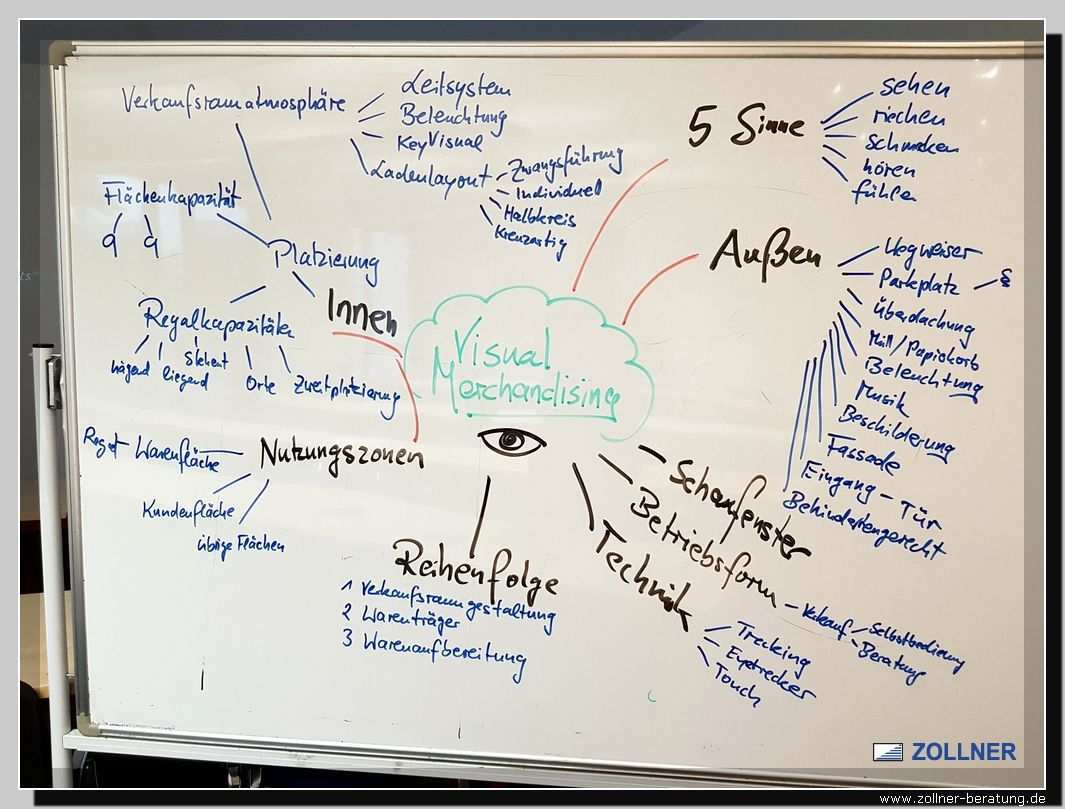 Verkaufsraumatmosphäre
Leitsystem
Beleuchtung
KeyVisual
Ladenlayout
Zwangsführung
Individuell
Halbkreis
Kreuzartig
5 Sinne
sehen
riechen
schmecken
hören
fühlen
Flächenkapazität
q
Platzierung
Innen
Außen
Wegweiser
Parkplatz
§
Überdachung
Müll/Papiekorb
Beleuchtung
Musik
Beschilderung
Fassade
Eingang - Tür
Behindertengerecht
Regalkapazitäten
hägend
liegend
Stehent
Orte
Zweitplatzierung
Visual
Merchandising
Nutzungszonen
Warenfläche
Kundenfläche
übrige Flächen
Schaufenster
Betriebsform - Verkauf
Selbstbedienung
Beratung
Technik
Trecking
Eyetrecker
Touch
Reihenfolge
1 Verkaufsraumgestaltung
2 Warenträger
3 Warenaufbereitung
ZOLLNER
www.zollner-beratung.de